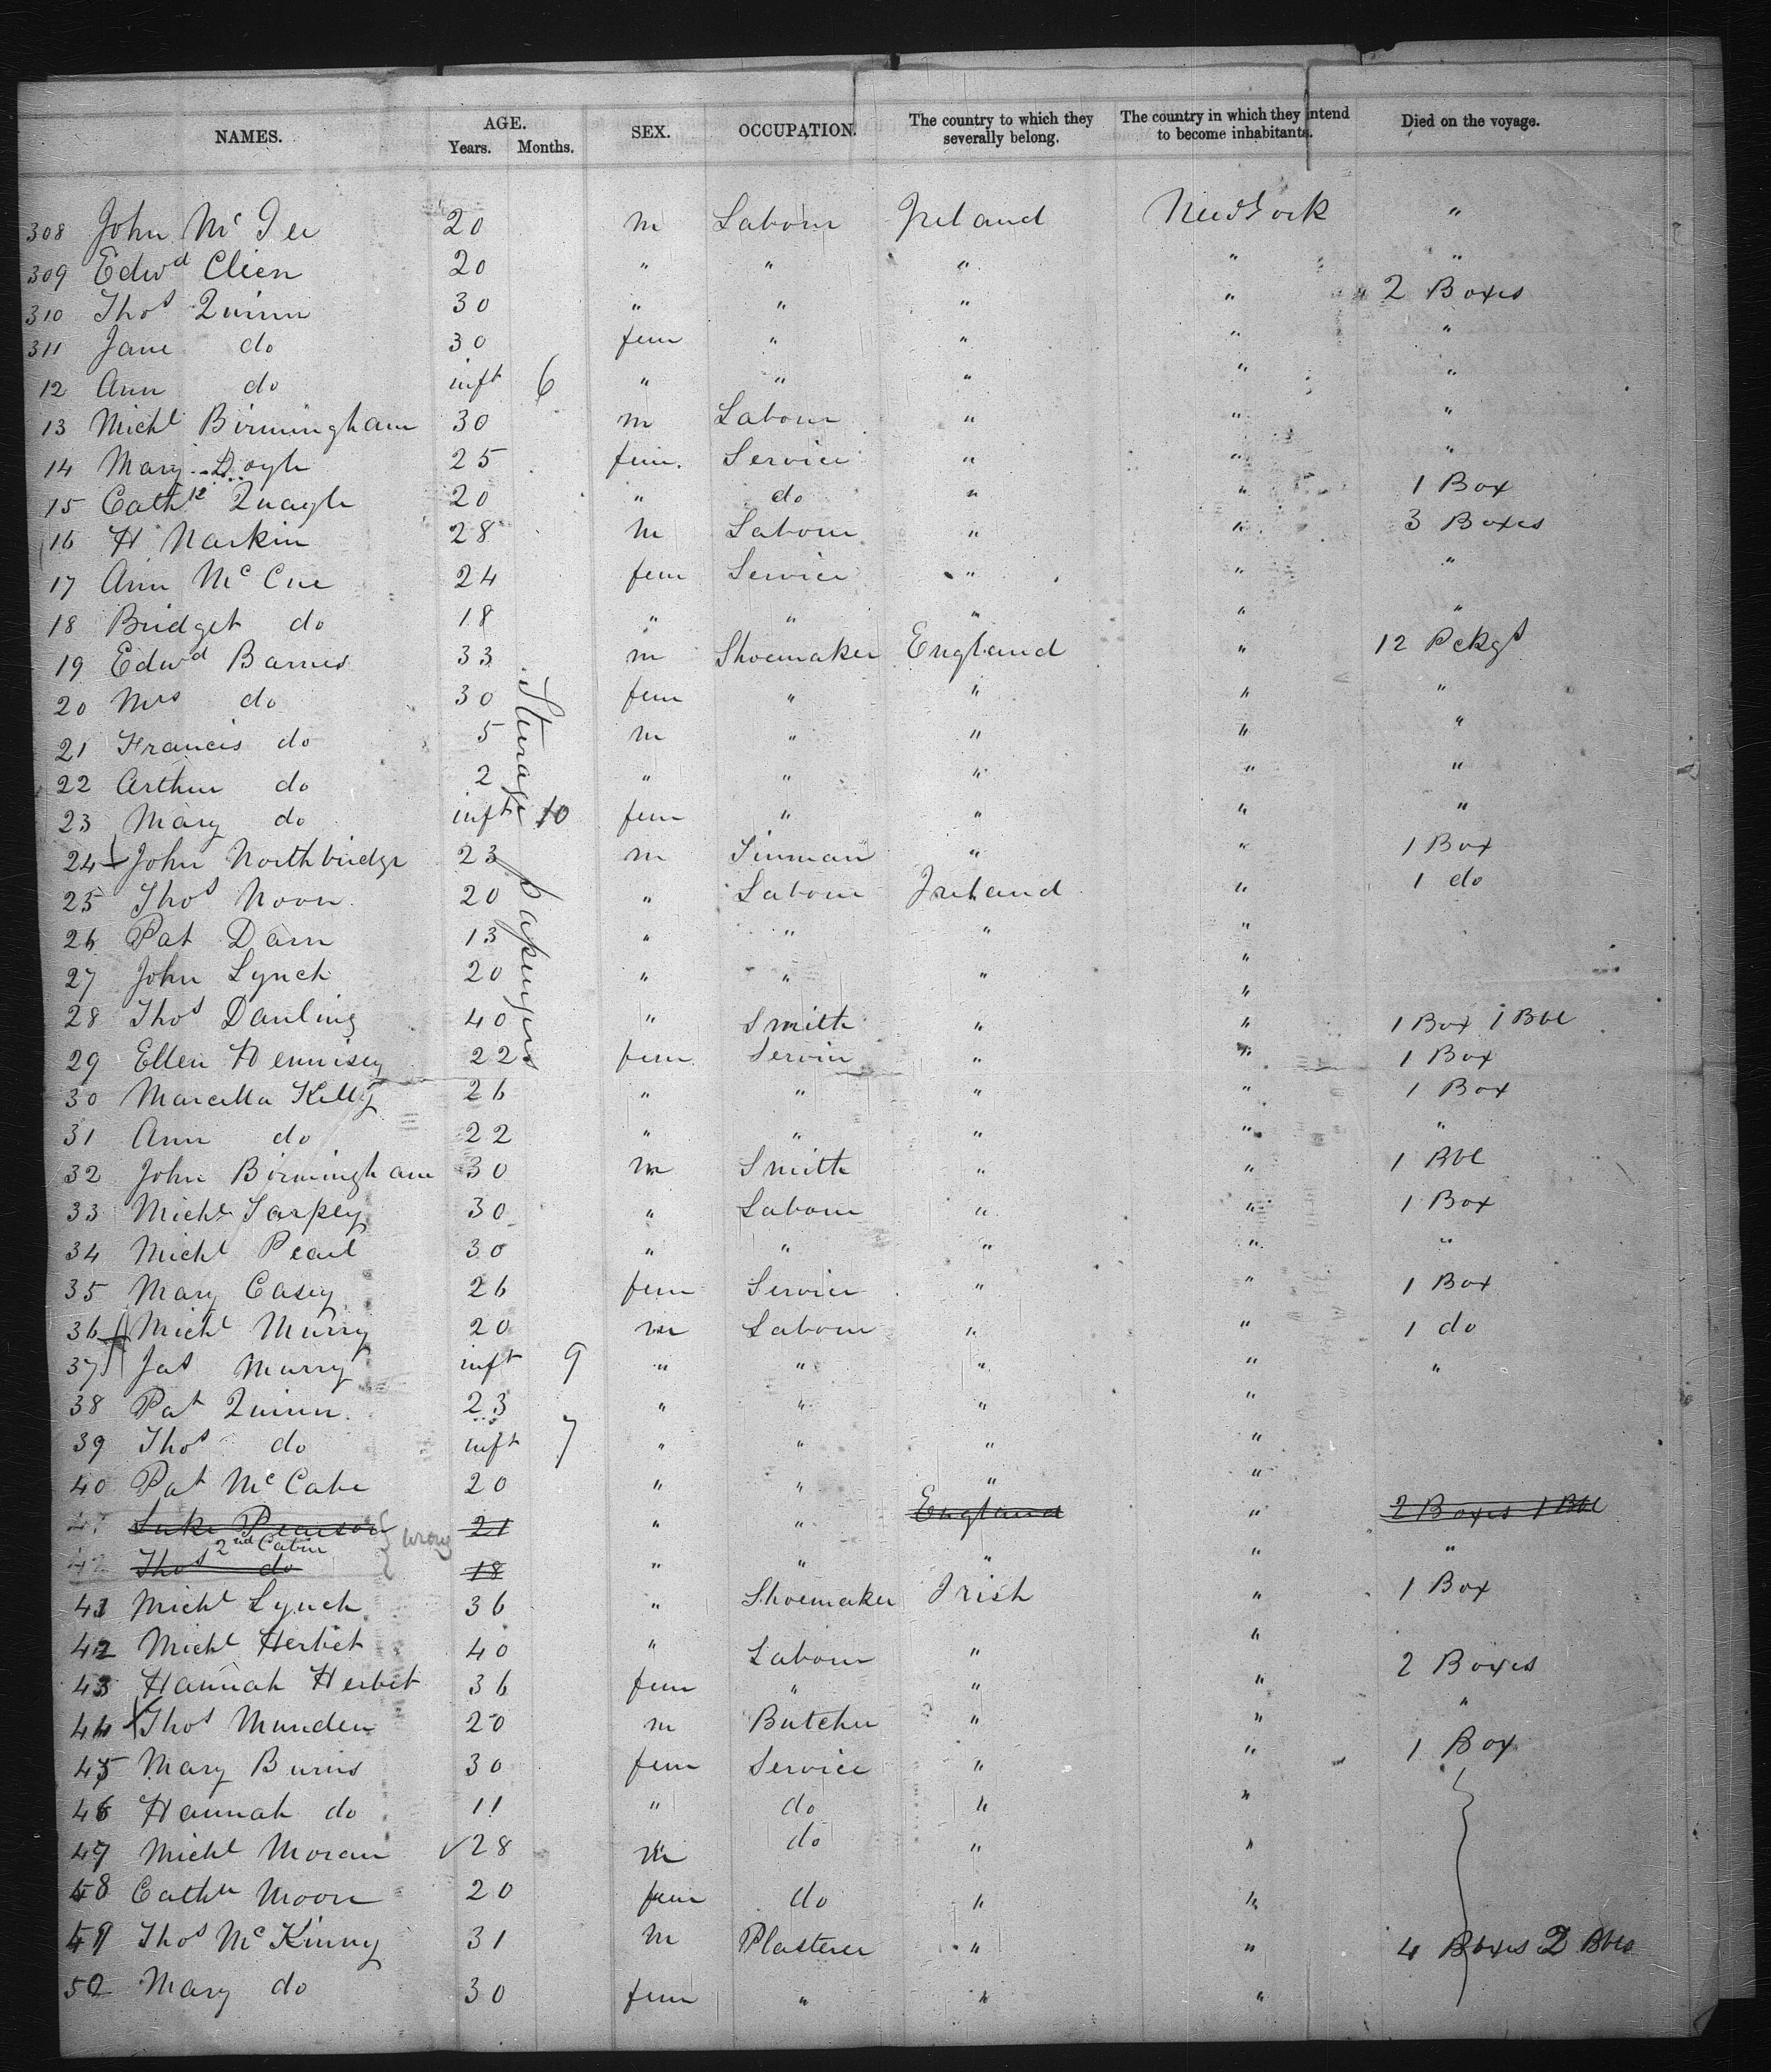 NAMES. AGE. Years. Months. SEX. OCCUPATION. The country to which they severally belong. The country in which they intend to become inhabitants. Died on the voyage.
308 John Mc Gee 20 m Labour Ireland New York "
309 Edwd Clien 20 " " " " "
310 Thos Quinn 30 " " " " " 2 Boxes
311 Jane do 30 fem " " " "
12 Ann do inft 6 " " " " "
13 Michl Birmingham 30 m Labour " " "
14 Mary Doyle 25 fem. Service " " "
15 Cathe Quagle 20 " do " " 1 Box
16 H Narkin 28 m Labour " " 3 Boxes
17 Ann Mc Cue 24 fem Service " " "
18 Bridget do 18 " " " " "
19 Edwd Barnes 33 m Shoemaker England " 12 Pckgs
20 Mrs do 30 fem " " " "
21 Francis do 5 m " " " "
22 Arthur do 2 " " " " "
23 Mary do inft 10 fem " " " "
Sterage pasengers
24 John Northbridge 23 m Tinman " " 1 Box
25 Thos Noon 20 " Labour Ireland " 1 do
26 Pat Darn 13 " " " "
27 John Lynch 20 " " " "
"
28 Thos Danling 40 " Smith " " 1 Box 1 Bbl
29 Ellen Hennisey 22 fem Servic " " 1 Box
30 Marcella Kelly 26 " " " " 1 Box
31 Ann do 22 " " " " "
32 John Birmingham 30 m Smith " " 1 Bbl
33 Michl Tarpey 30 " Labour " " 1 Box
34 Michl Pearl 30 " " " " "
35 Mary Casey 26 fem Service " " 1 Box
36 Michl Murry 20 m Labour " " 1 do
37 Jas Murry inft 9 " " " " "
38 Pat Quinn 23 " " " "
39 Thos do inft 7 " " " "
40 Pat Mc Cabe 20 " " " "
41 Luke Pearson 21 " " England " 2 Boxes 1 Bbl
2nd Cabin wrong
42 Thos do 18 " " " " "
41 Michl Lynch 36 " Shoemaker Irish " 1 Box
42 Michl Herbet 40 " Labour " " 2 Boxes
43 Hannah Herbet 36 fem " " " "
44 Thos Munden 20 m Butcher " "
45 Mary Burns 30 fem Service " " 1 Box
46 Hannah do 11 " do " "
47 Michl Moran 28 m do " "
48 Cathn Moon 20 fem do " "
49 Thos Mc Kinny 31 m Plasterer " " 4 Boxes 2 Bbls
50 Mary do 30 fem " " "